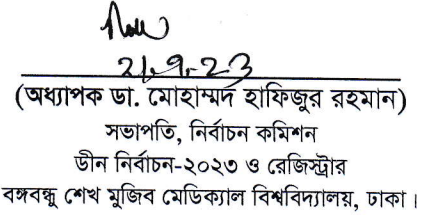 21.9.23
(অধ্যাপক ডা. মোহাম্মদ হাফিজুর রহমান)
সভাপতি, নির্বাচন কমিশন
ডীন নির্বাচন-২০২৩ ও রেজিস্ট্রার
বঙ্গবন্ধু শেখ মুজিব মেডিক্যাল বিশ্ববিদ্যালয়, ঢাকা।